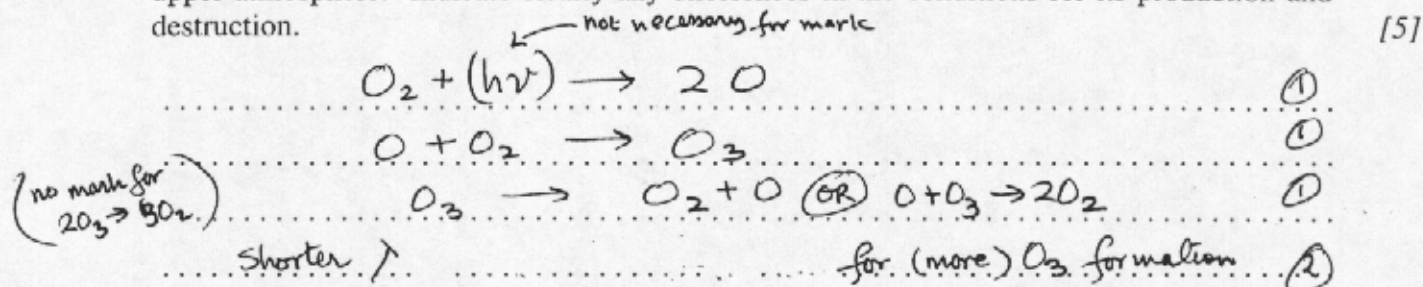 destruction.
[5]
not necessary for mark
O₂ + (hν) → 2 O ①
O + O₂ → O₃ ①
(no mark for 2O₃ → 3O₂)
O₃ → O₂ + O (OR) O + O₃ → 2O₂ ①
shorter λ for (more) O₃ formation ②